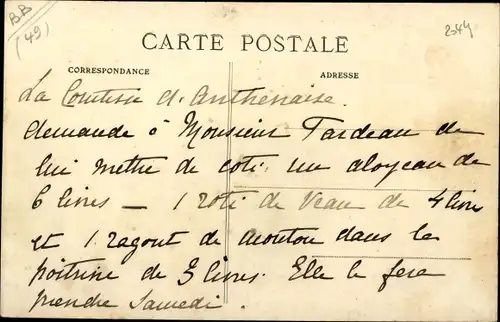 BB
(49)
2544
CARTE POSTALE
CORRESPONDANCE
ADRESSE
La Comtesse d'Anthenaise
demande à Monsieur Tardeau de
lui mettre de coté un aloyeau de
6 livres — 1 roti de Veau de 4 livres
et 1 ragout de mouton dans la
poitrine de 3 livres. Elle le fera
prendre Samedi.